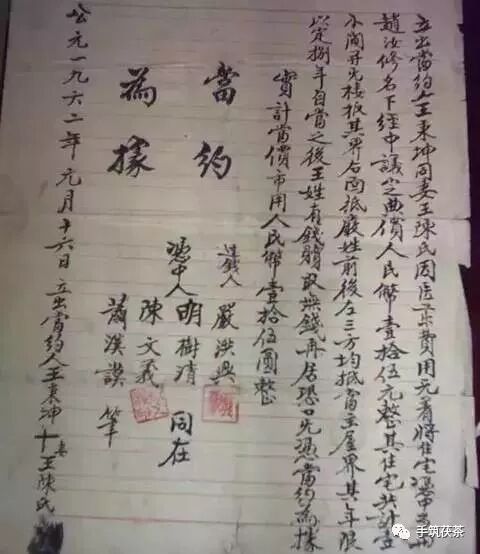 立出當約人王東坤同妻王陳氏因醫藥費用無着將住宅憑中典
趙汝修名下經中議定典價人民幣壹拾伍元整其住宅共計壹
小間并無樓板其界后面抵嚴姓前後左三方均抵當主屋界其年限
以定捌年自當之後王姓有錢贖取無錢再居恐口無憑當約為據
實計當價市用人民幣壹拾伍圓整
當約
為據
過錢人 嚴洪興
憑中人 明樹清 同在
陳文義
蕭漢謨 筆
公元一九六二年元月十六日立出當約人王東坤十妻王陳氏
手筑茯茶